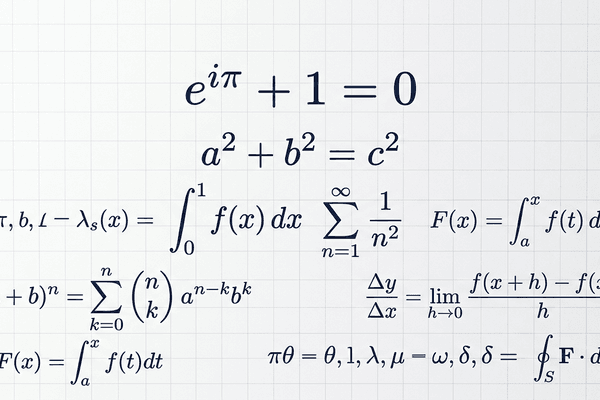 e^{iπ} + 1 = 0
a² + b² = c²
τ, b, ι − λₛ(x) = ∫₀¹ f(x) dx ∑_{n=1}^{∞} 1/n² F(x) = ∫ₐˣ f(t) d
+ b)ⁿ = ∑_{k=0}^{n} (n k) a^{n−k}b^k Δy/Δx = lim_{h→0} f(x + h) − f(x / h
F(x) = ∫ₐˣ f(t)dt πθ = θ, 1, λ, μ − ω, δ, δ = ∮_S F · d